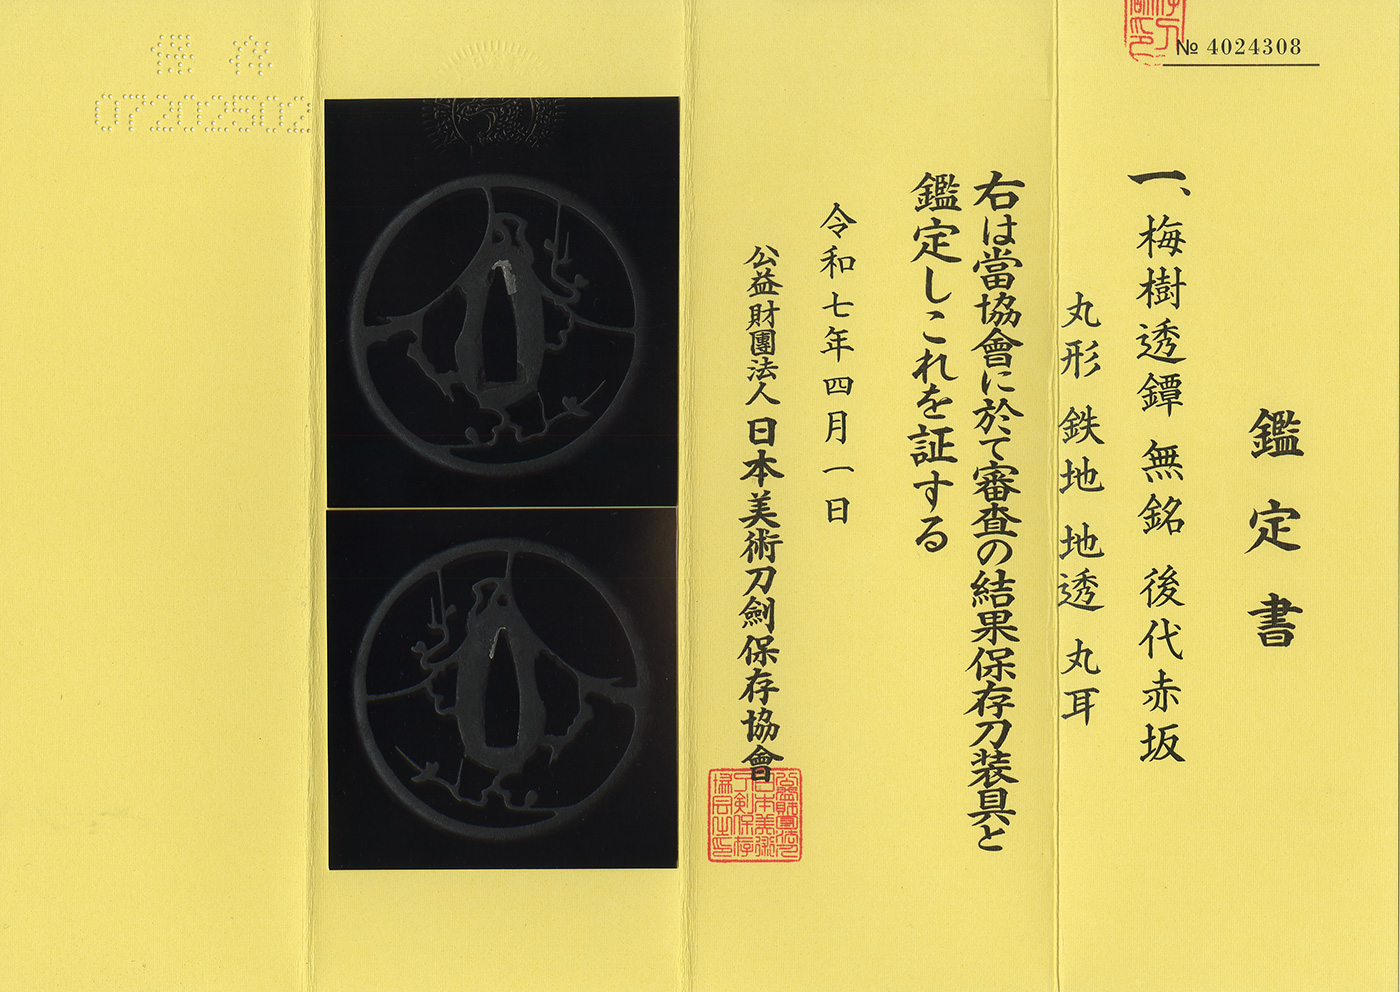 № 4024308
鑑定書
一、梅樹透鐔 無銘 後代赤坂
丸形 鉄地 地透 丸耳
右は當協會に於て審査の結果保存刀装具と
鑑定しこれを証する
令和七年四月一日
公益財團法人 日本美術刀劍保存協會
保存
07202502